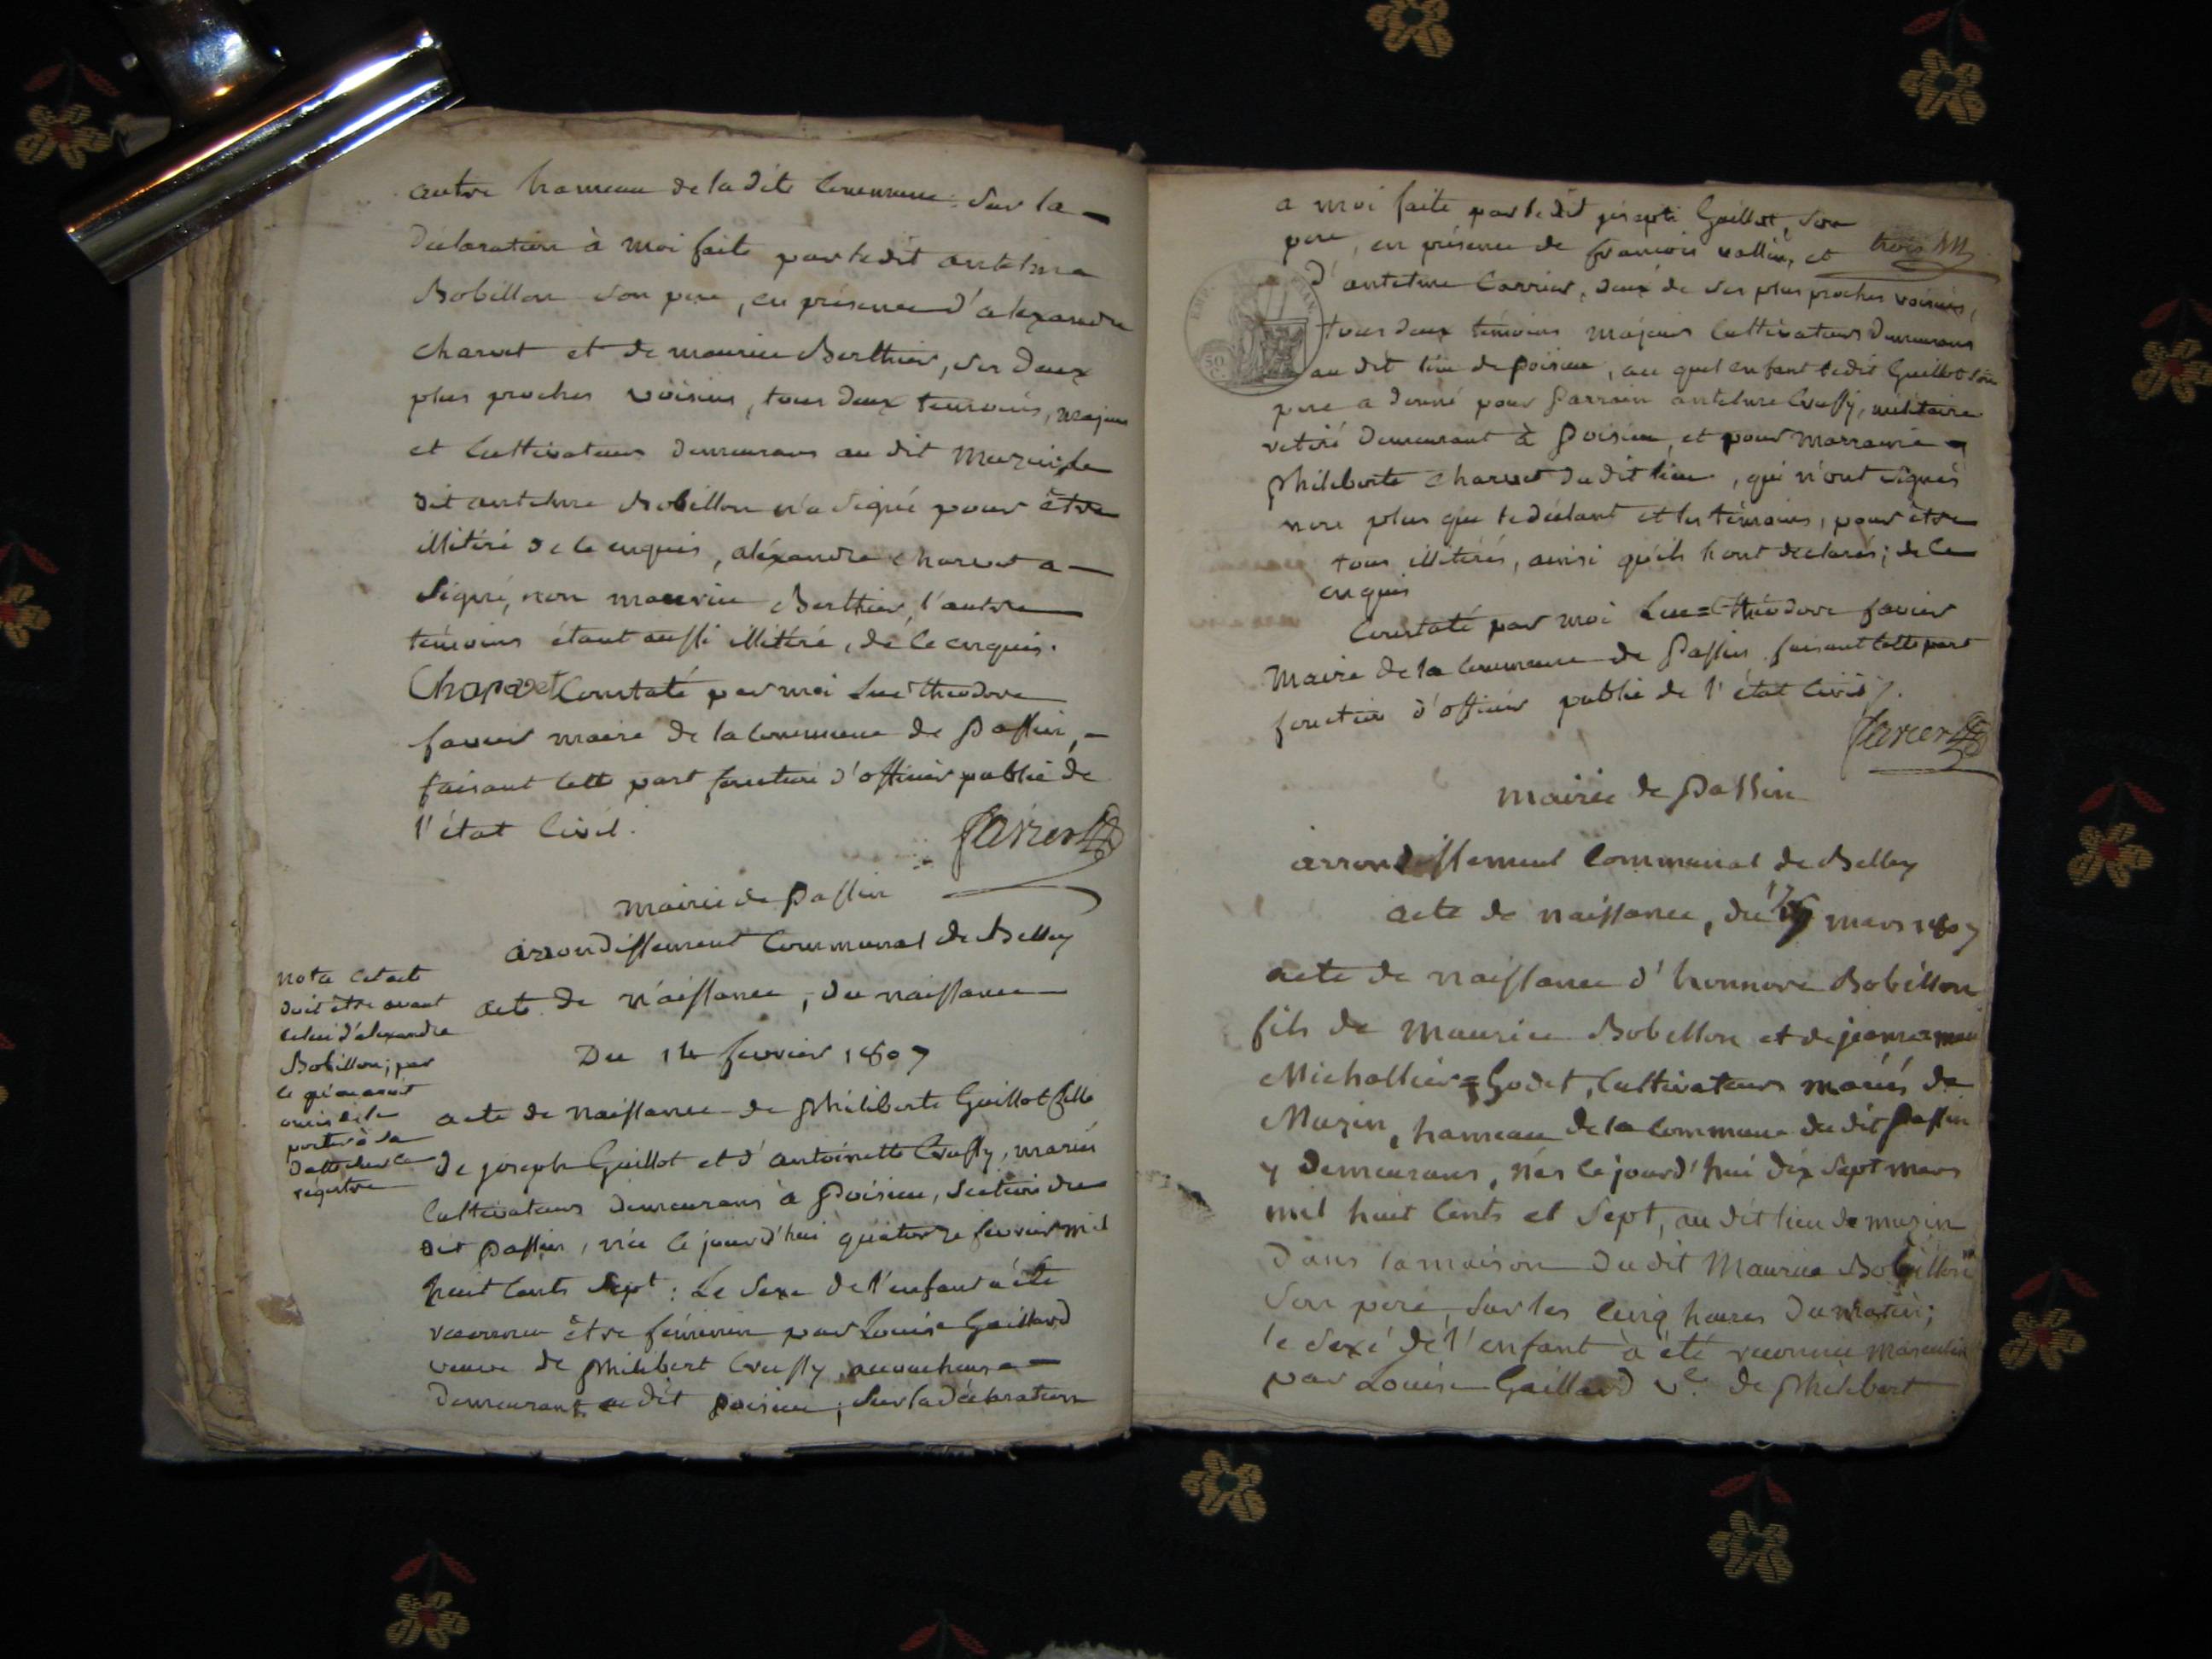 autre hameau de la dite Commune. Sur la
déclaration à moi faite par le dit antelme
Bobillon son pere, en présence d'alexandre
charvet et de maurice Berthier, ses deux
plus proches voisins, tous deux temoins, majeurs
et Cultivateurs demeurans au dit Muzin, le
dit antelme Bobillon n'a signé pour être
illitéré de ce enquis, aléxandre charvet a
signé, non maurice Berthier, l'autre
témoins étant aussi illitéré, de ce enquis.
Charvet Constaté par moi Luc theodore
favier maire de la Commune de Passin,
faisant cette part fonction d'officier public de
l'état Civil.
favier
mairie de Passin
arrondissement Communal de Belley
acte de naissance, du naissance
Du 14 fevrier 1807
nota cet acte
doit être avant
celui d'alexandre
Bobillon; par
ce qu'on avoit
omis de le
porter à sa
datte sur le
régistre
acte de naissance de philiberte Guillot fille
de joseph Guillot et d'antoinette Crussy, mariés
Cultivateurs demeurans à Poisieu, section du
dit Passin, née ce jourd'hui quatorze fevrier mil
huit Cents Sept: Le Sexe de l'enfant a été
reconnu être féminin par Louise Gaillard
veuve de philibert Crussy, accoucheuse
demeurant au dit poisieu; sur la déclaration
a moi faite par le dit joseph Guillot, son
pere, en présence de francois vallin, et
trois
d'antelme Carrier, deux de ses plus proches voisins,
tous deux témoins majeurs Cultivateurs demeurans
EMP. FRAN.
50 C
au dit lieu de poisieu, au quel enfant le dit Guillot son
pere a donné pour Parrain antelme Crussy, militaire
retiré demeurant à Poisieu, et pour marraine
philiberte charvet du dit lieu, qui n'ont signés
non plus que le déclarant et les témoins, pour être
tous illitérés, ainsi qu'ils l'ont declarés; de ce
enquis
Constaté par moi Luc=théodore favier
Maire de la Commune de Passin faisant cette part
fonction d'officier public de l'état Civil.
favier
mairie de Passin
arrondissement Communal de Belley
acte de naissance, du 17 mars 1807
acte de naissance d'honnore Bobillon
fils de Maurice Bobillon et de jeanne marie
Michallier=Godet, Cultivateurs mariés de
Muzin, hameau de la Commune du dit Passin
y demeurans, nés ce jourd'hui dix Sept mars
mil huit Cents et Sept, au dit lieu de muzin
dans la maison du dit Maurice Bobillon
Son pere, sur les cinq heures du matin;
le Sexe de l'enfant à été reconnu masculin
par Louise Gaillard v.e de philibert